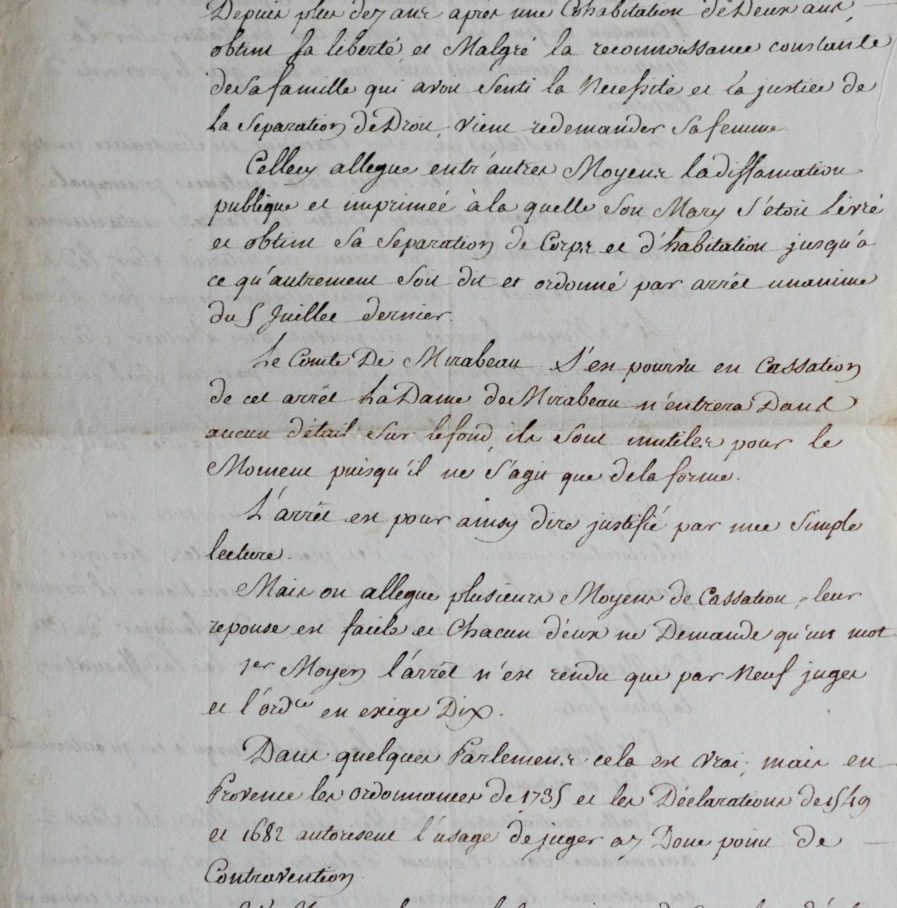 Depuis plus de 7 ans après une Cohabitation de Deux ans
obtint sa liberté et Malgré la reconnoissance constante
de Sa famille qui avou Senti la Necessité et la justice de
la Separation de Droit, vient redemander Sa femme
Celle cy allegue entr'autres Moyens la diffamation
publique et impriméé à la quelle Son Mary s'étoit Livré
et obtint Sa Separation de Corps et d'habitation jusqu'à
ce qu'autrement Soit dit et ordonné par arrêt unanime
du 5 Juillet dernier.
Le Comte De Mirabeau S'est pourvu en Cassation
de cet arrêt La Dame de Mirabeau n'entrera Dans
aucun détail Sur le fond, ils Sont inutiles pour le
Moment puisqu'il ne S'agit que de la forme.
L'arrêt est pour ainsy dire justifié par une Simple
lecture.
Mais on allegue plusieurs Moyens de Cassation, leur
reponse est facile et Chacun d'eux ne Demande qu'un mot
1er Moyen l'arrêt n'est rendu que par Neuf juges
et l'ordce en exige Dix.
Dans quelques Parlemens cela est vrai; mais en
Provence les ordonnances de 1735 et les Déclarations de 1549
et 1682 autorisent l'usage de juger a 7 Donc point de
Contravention